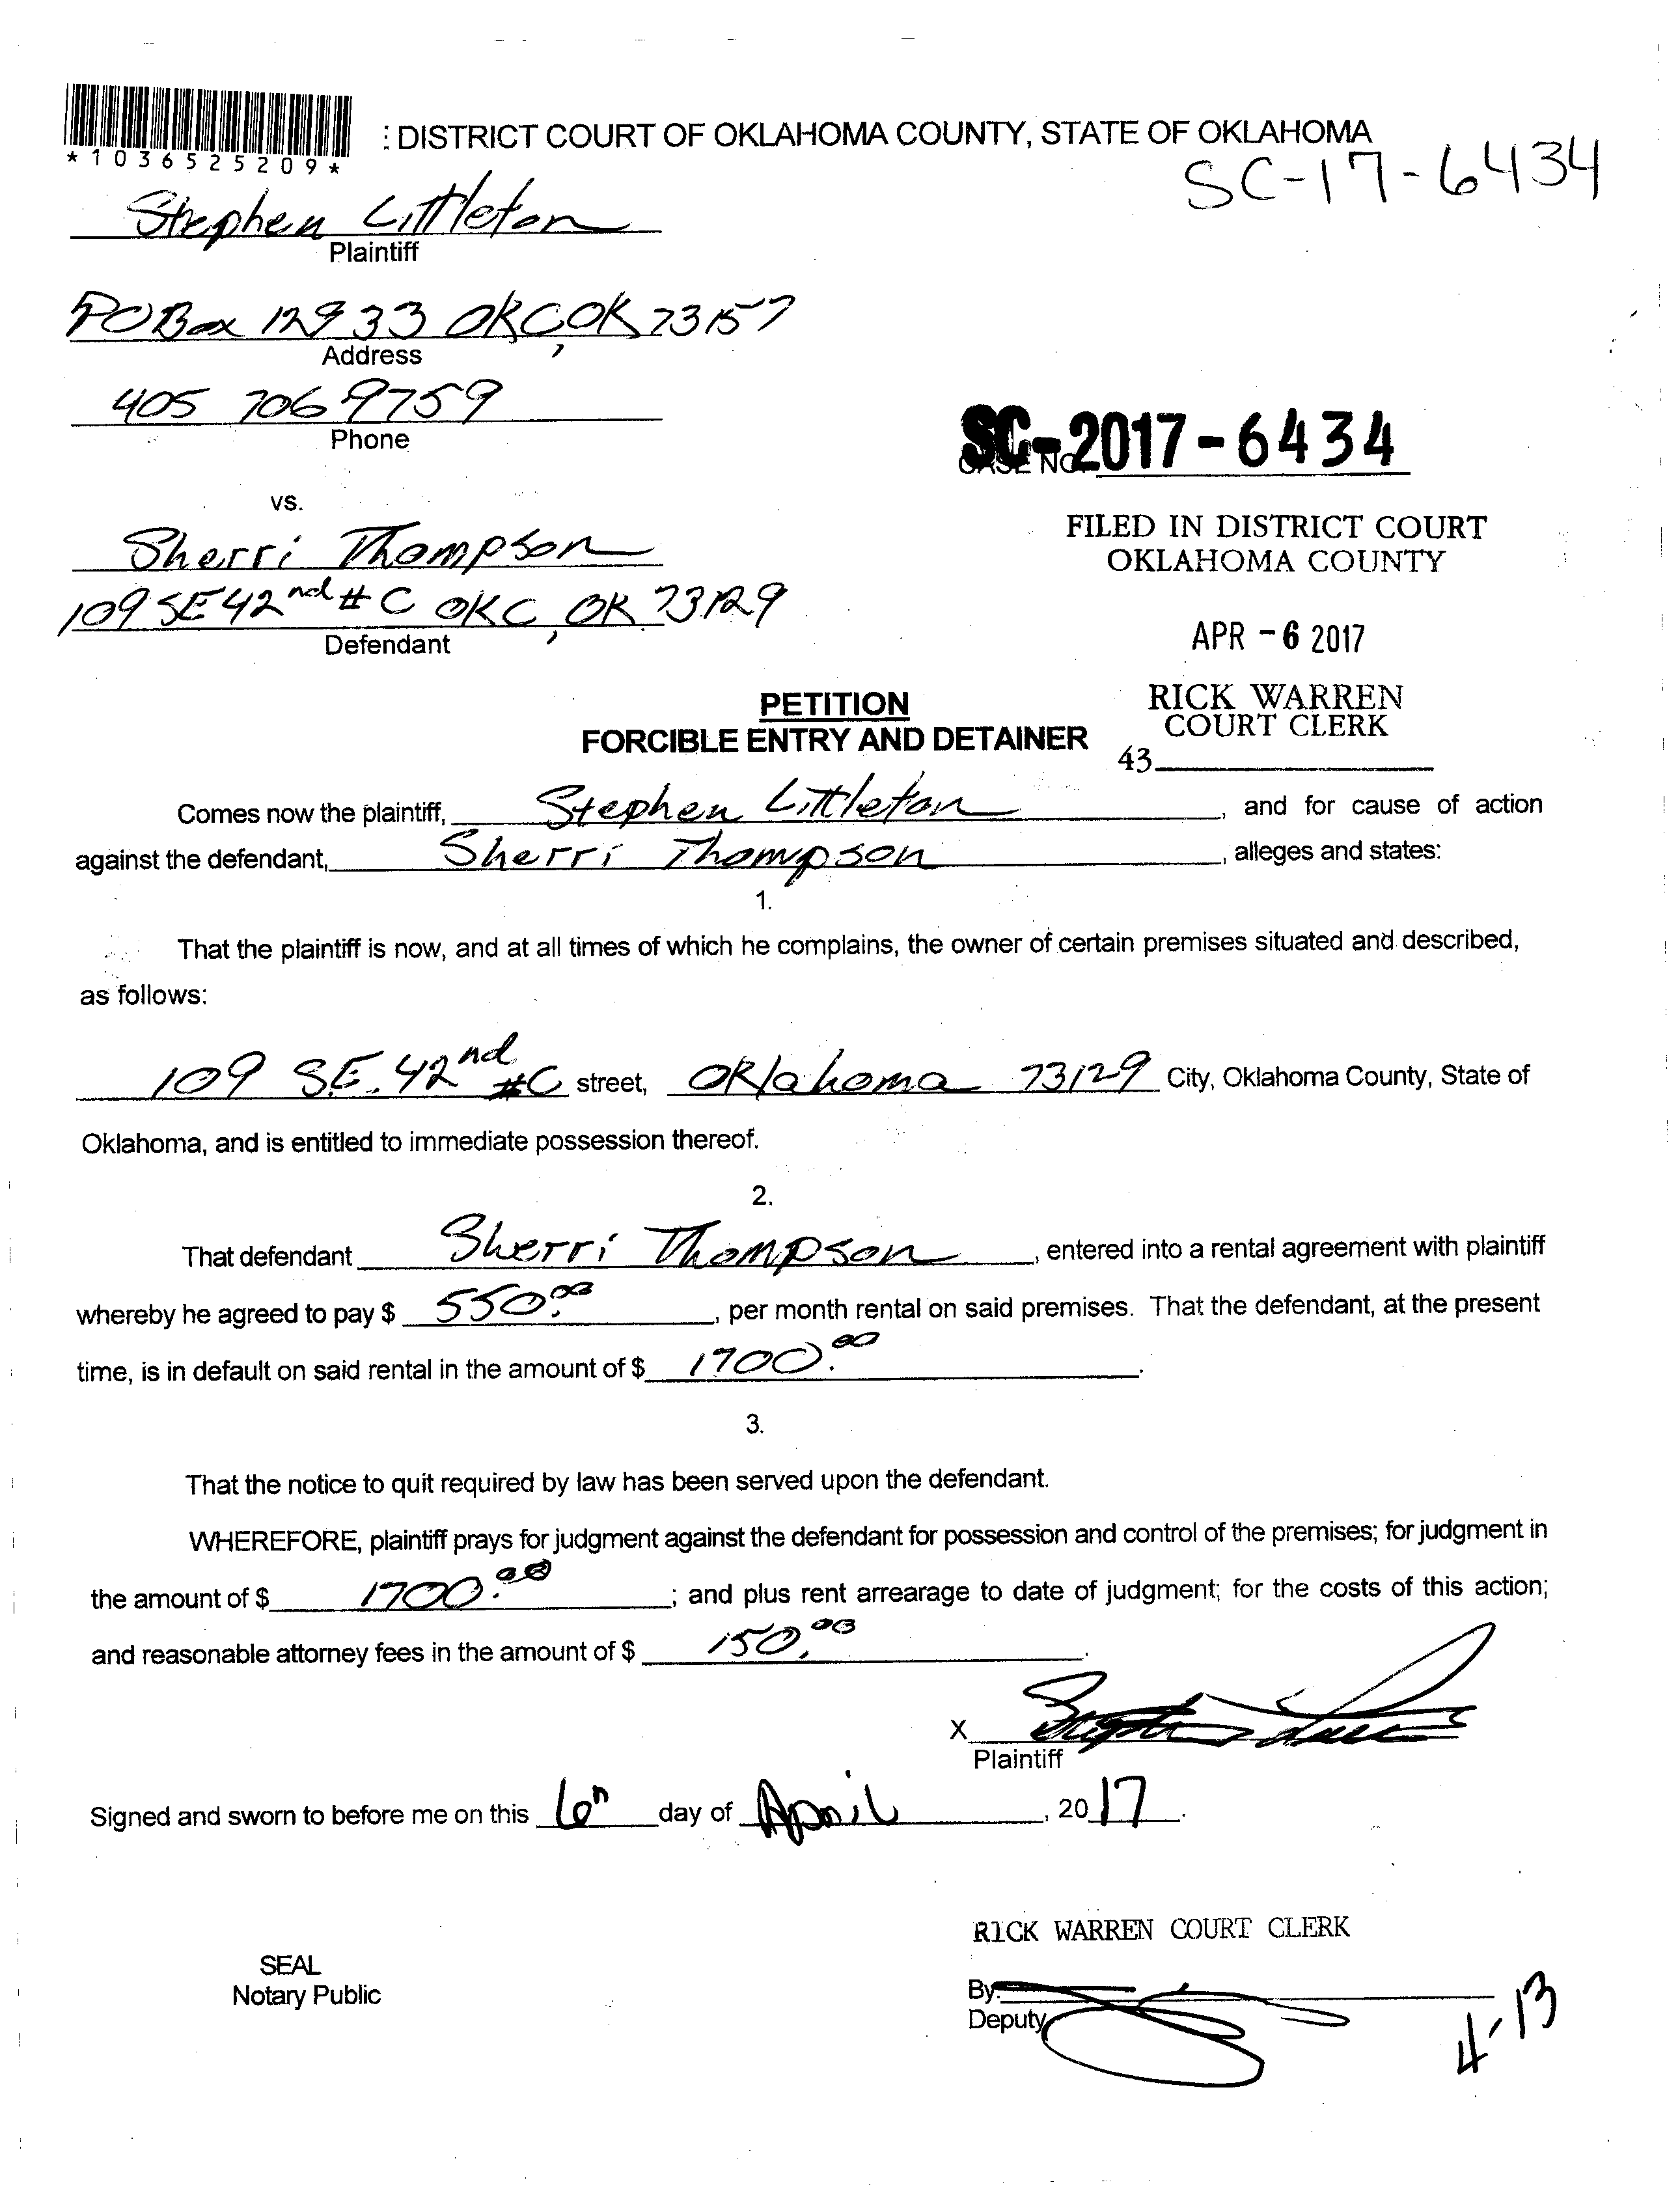 *1036525209*
: DISTRICT COURT OF OKLAHOMA COUNTY, STATE OF OKLAHOMA
SC-17-6434
Stephen Littleton
Plaintiff
PO Box 12933 OKC, OK 73157
Address
405 706 9759
Phone
SC-2017-6434
CASE NO.
vs.
Sherri Thompson
109 SE 42nd #C OKC, OK 73129
Defendant
FILED IN DISTRICT COURT
OKLAHOMA COUNTY
APR -6 2017
RICK WARREN
COURT CLERK
43
PETITION
FORCIBLE ENTRY AND DETAINER
Comes now the plaintiff, Stephen Littleton, and for cause of action
against the defendant, Sherri Thompson, alleges and states:
1.
That the plaintiff is now, and at all times of which he complains, the owner of certain premises situated and described,
as follows:
109 S.E. 42nd #C street, Oklahoma 73129 City, Oklahoma County, State of
Oklahoma, and is entitled to immediate possession thereof.
2.
That defendant Sherri Thompson, entered into a rental agreement with plaintiff
whereby he agreed to pay $ 550.00, per month rental on said premises. That the defendant, at the present
time, is in default on said rental in the amount of $ 1700.00.
3.
That the notice to quit required by law has been served upon the defendant.
WHEREFORE, plaintiff prays for judgment against the defendant for possession and control of the premises; for judgment in
the amount of $ 1700.00; and plus rent arrearage to date of judgment; for the costs of this action;
and reasonable attorney fees in the amount of $ 150.00.
X
Plaintiff
Signed and sworn to before me on this 6th day of April, 2017.
RICK WARREN COURT CLERK
SEAL
Notary Public
By:
Deputy
4-13